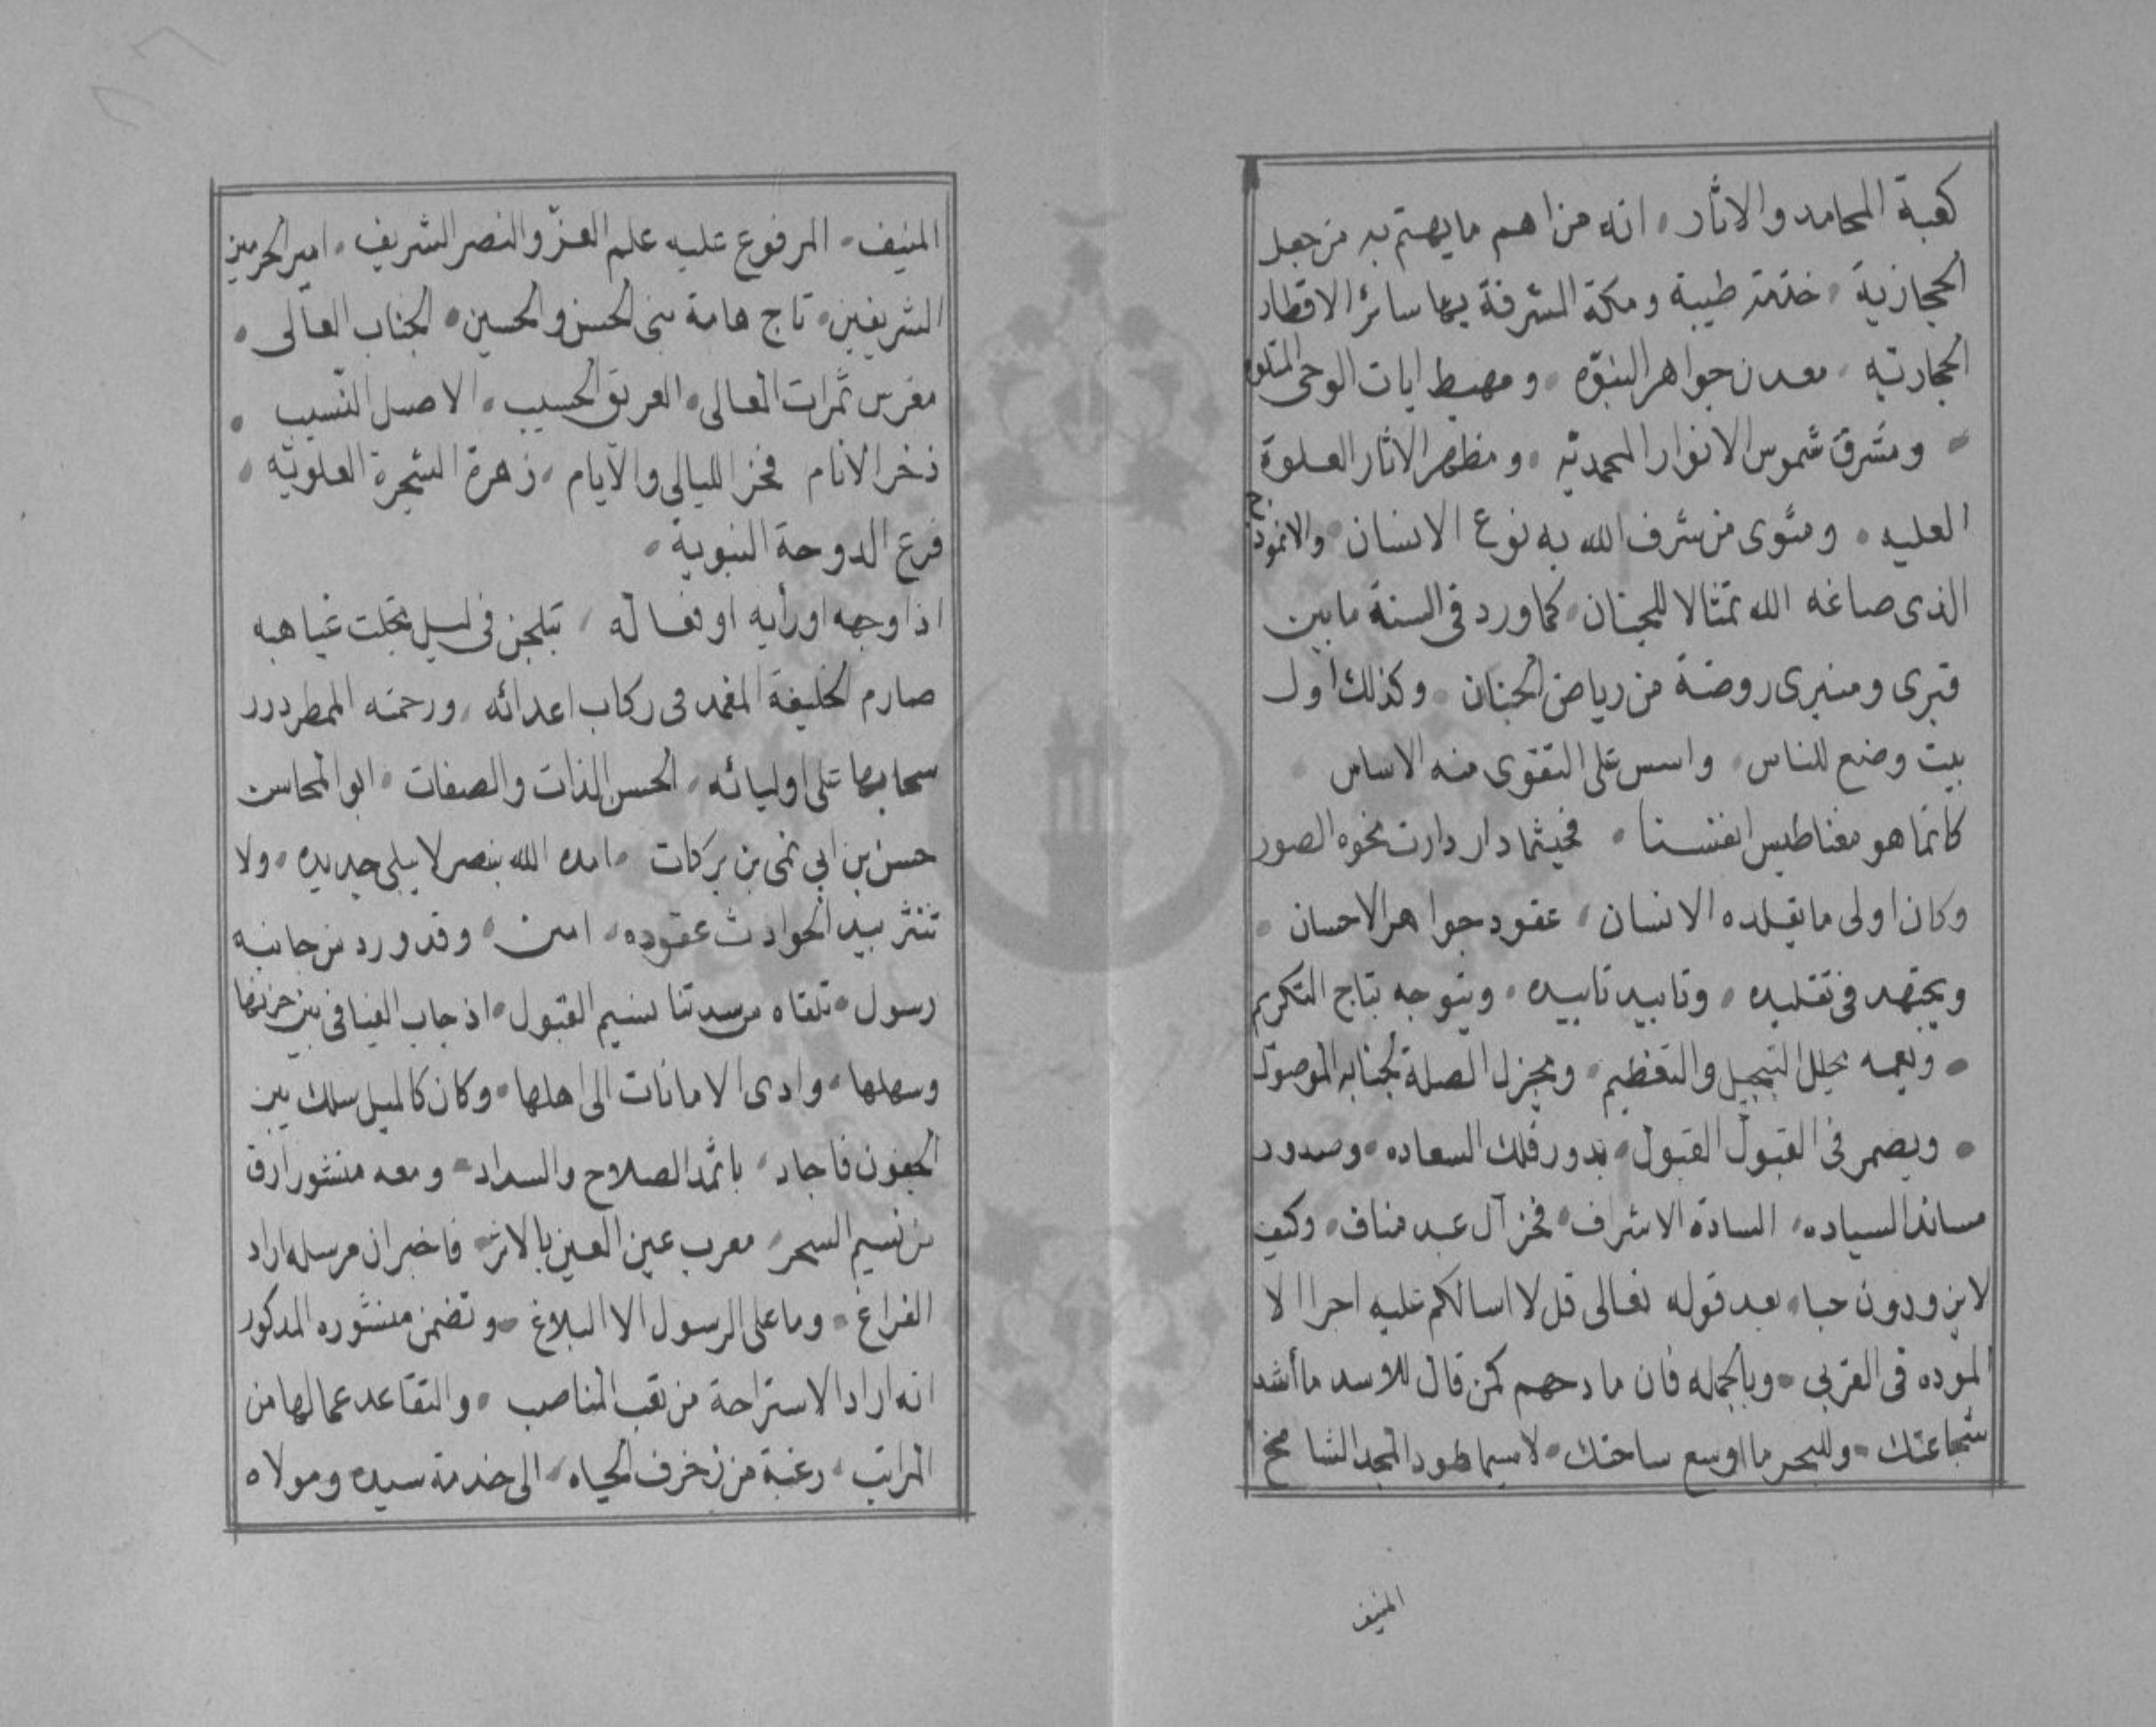 كعبة المحامد والاثار، انه من اهم ما يهتم به من جعل
الحجازية، طيبة ومكة المشرفة بها سائر الاقطار
الحجارية، معدن جواهر النبوّه، ومهبط ايات الوحى المتلو
، ومشرق شموس الانوار المحمديه، ومظهر الاثار العلوة
العليه، ومثوى من شرف الله به نوع الانسان، والانموذج
الذى صاغه الله تمثالا للجنان، كما ورد فى السنة ما بين
قبرى ومنبرى روضة من رياض الجنان، وكذلك اول
بيت وضع للناس، واسس على التقوى منه الاساس،
كانما هو مغناطيس انفسنا، فحيثما دار دارت نحوه الصور
وكان اولى ما يقلده الانسان، عقود جواهر الاحسان،
ويجتهد فى تقليده، وتاييد تابيده، ويتوجه بتاج التكريم
، ويعمه بحلل التبجيل والتعظيم، ويجزل الصلة لجنابه الموصول
، ويضمر فى القبول القبول، بدور فلك السعاده، وصدور
مساند السياده، السادة الاشراف، فخر آل عبد مناف، وكيف
لا يزودون حبا، بعد قوله تعالى قل لا اسالكم عليه اجرا الا
الموده فى القربى، وبالجمله فان مادحهم كمن قال للاسد ما أشد
شجاعتك، وللبحر ما اوسع ساحتك، لاسيما طود المجد الشامخ
المنيف
المنيف، المرفوع عليه علم العزّ والنصر الشريف، امير الحرمين
الشريفين، تاج هامة بنى الحسن والحسين، الجناب العالى،
مغرس ثمرات المعالى، العريق الحسيب، الاصل النسيب،
ذخر الانام فخر الليالى والايام، زهرة الشجرة العلويّه،
فرع الدوحة النبوية،
اذا وجهه او رأيه او فعاله، تبلجن فى ليل تجلت غياهبه
صارم الخليفة المغمد فى ركاب اعدائه، ورحمته الممطر درر
سحابها على اوليائه، الحسن الذات والصفات، ابو المحاسن
حسن بن ابي نمى بن بركات، امده الله بنصر لا يبلى جديده، ولا
تنثر بيد الحوادث عقوده، امين، وقد ورد من جانبه
رسول، تلقاه من سدتنا نسيم القبول، اذ جاب الفيافى بين حزنها
وسهلها، وادى الامانات الى اهلها، وكان كالميل سلك بين
الجفون فاجاد، باثمد الصلاح والسداد، ومعه منشور ارق
من نسيم السحر، معرب عين العين بالاثر، فاخبر ان مرسله اراد
الفراغ، وما على الرسول الا البلاغ، وتضمن منشوره المذكور
انه اراد الاستراحة من تعب المناصب، والتقاعد عما لها من
المراتب، رغبة من زخرف الحياه، الى خدمة سيده ومولاه